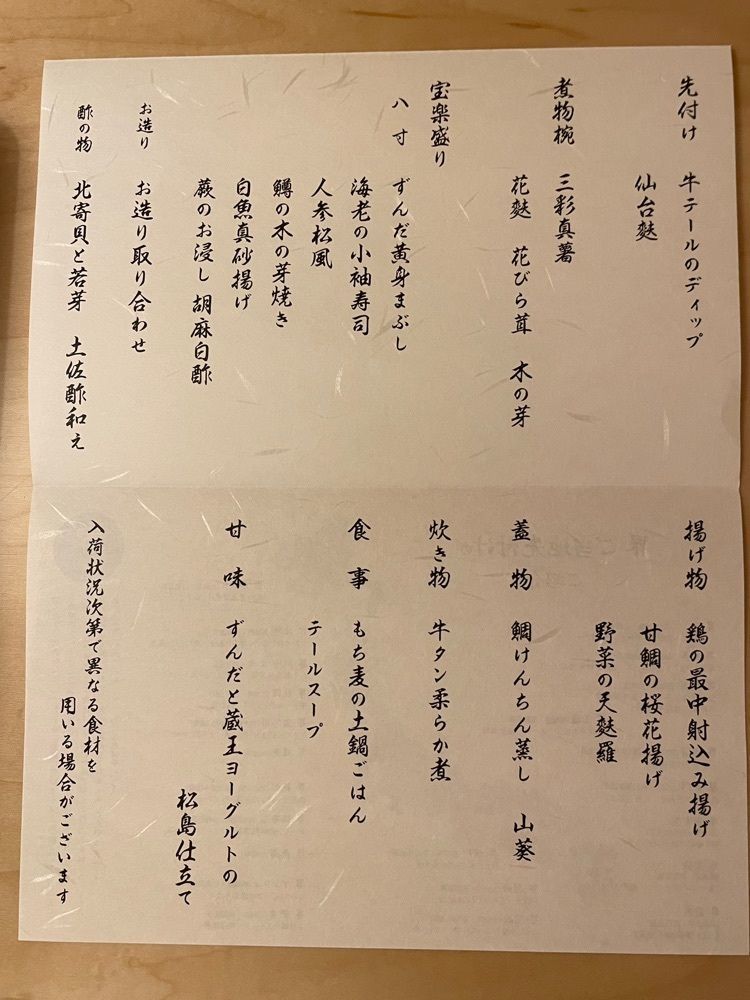 先付け 牛テールのディップ
仙台麩
煮物椀 三彩真薯
花麩 花びら茸 木の芽
宝楽盛り
八寸 ずんだ黄身まぶし
海老の小袖寿司
人参松風
鱒の木の芽焼き
白魚真砂揚げ
蕨のお浸し 胡麻白酢
お造り お造り取り合わせ
酢の物 北寄貝と若芽 土佐酢和え
揚げ物 鶏の最中射込み揚げ
甘鯛の桜花揚げ
野菜の天麩羅
蓋物 鯛けんちん蒸し 山葵
炊き物 牛タン柔らか煮
食事 もち麦の土鍋ごはん
テールスープ
甘味 ずんだと蔵王ヨーグルトの
松島仕立て
入荷状況次第で異なる食材を
用いる場合がございます